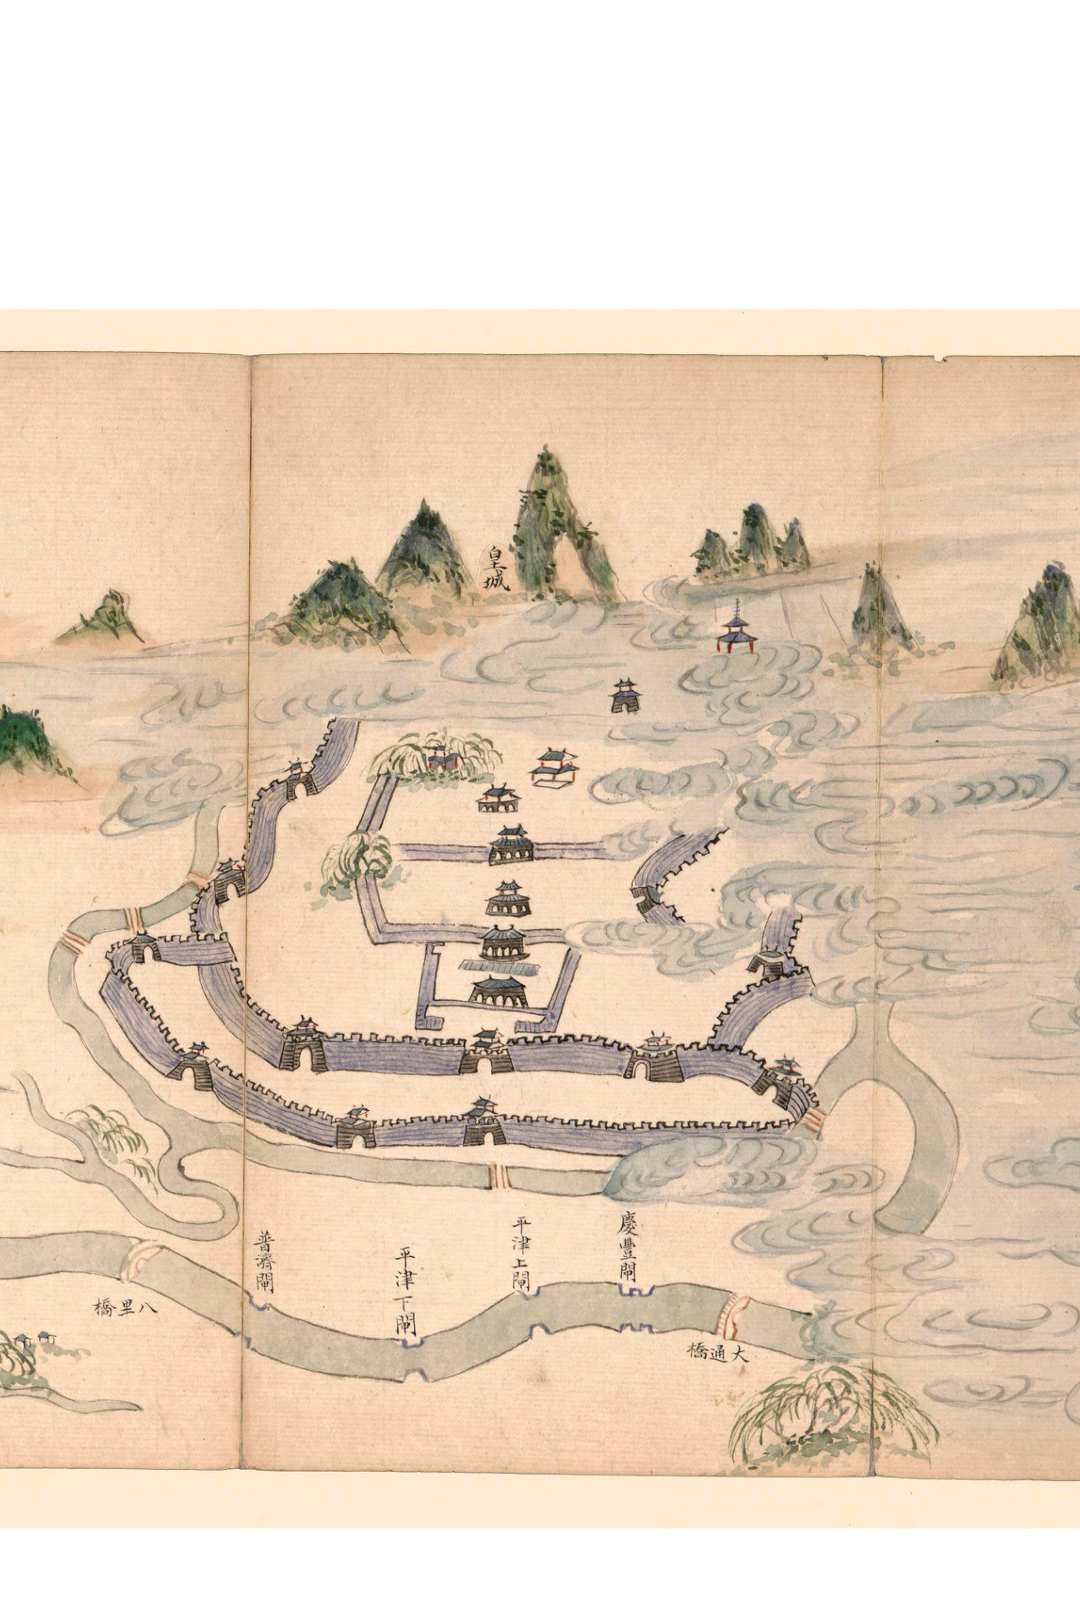 皇城
慶豐閘
平津上閘
平津下閘
普濟閘
大通橋
八里橋